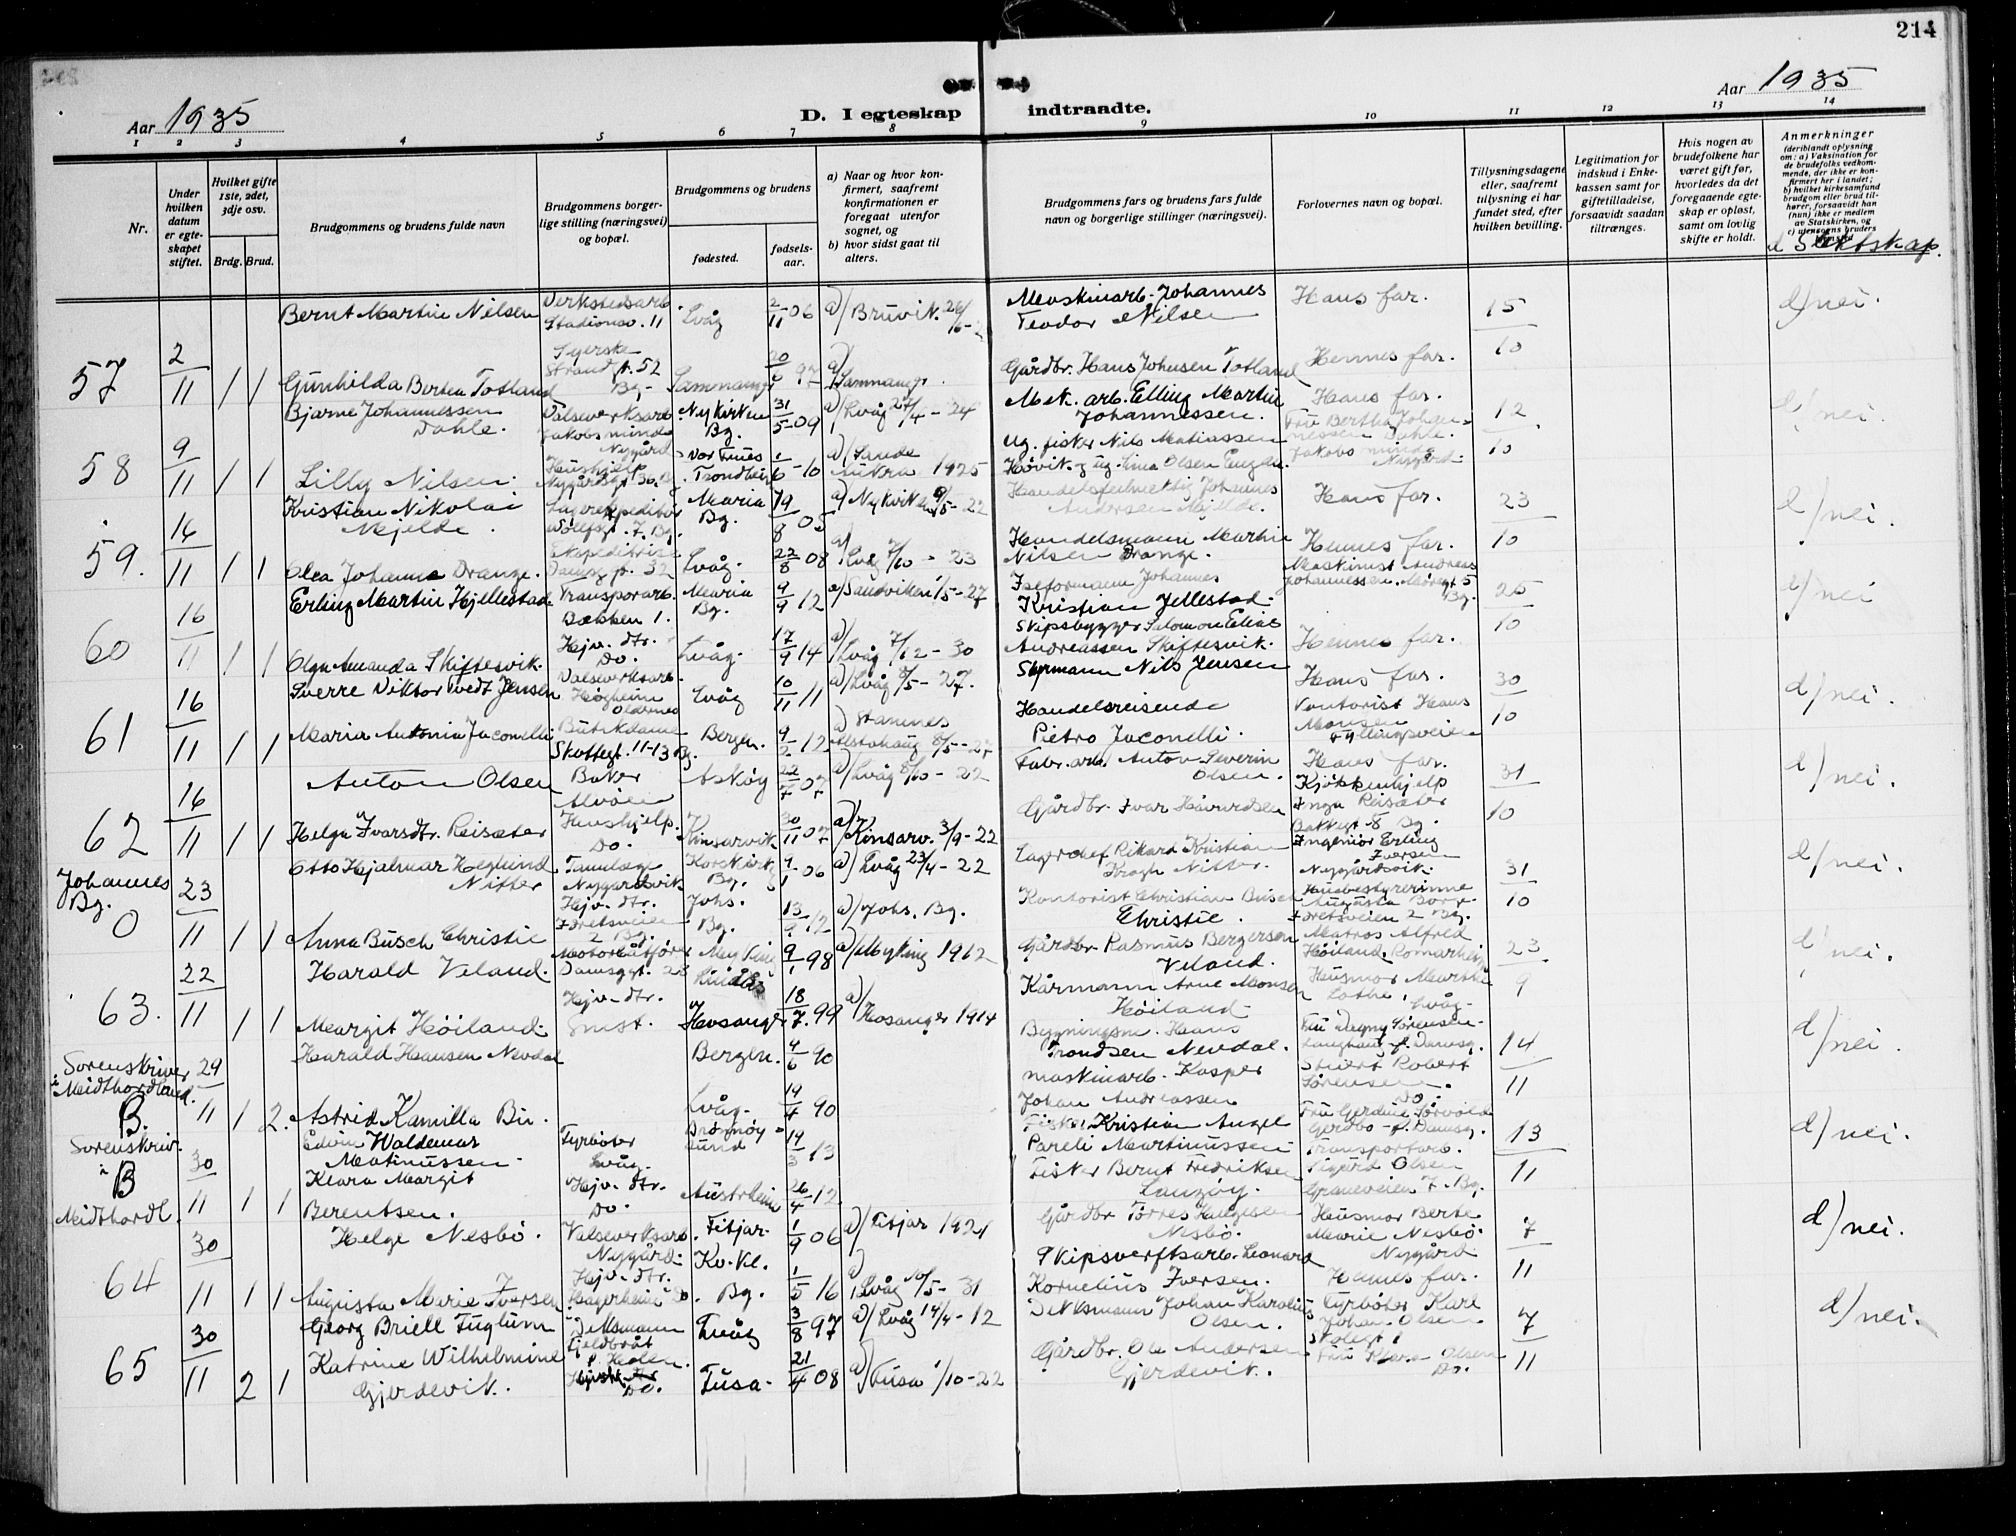 214
Aar 1935
D. I egteskap
indtraadte.
Aar 1935
1 2 3 4 5 6 7 8 9 10 11 12 13 14
Nr.
Under hvilken datum er egteskapet stiftet.
Hvilket gifte 1ste, 2det, 3dje osv.
Brdg. Brud.
Brudgommens og brudens fulde navn
Brudgommens borgerlige stilling (næringsvei) og bopæl.
Brudgommens og brudens
fødested.
fødselsaar.
a) Naar og hvor konfirmert, saafremt konfirmationen er foregaat utenfor sognet, og
b) hvor sidst gaat til alters.
Brudgommens fars og brudens fars fulde navn og borgerlige stillinger (næringsvei).
Forlovernes navn og bopæl.
Tillysningsdagene eller, saafremt tillysning ei har fundet sted, efter hvilken bevilling.
Legitimation for indskud i Enkekassen samt for giftetilladelse, forsaavidt saadan tiltrænges.
Hvis nogen av brudefolkene har været gift før, hvorledes da det foregaaende egteskap er opløst, samt om lovlig skifte er holdt.
Anmerkninger
(deriblandt oplysning om: a) Vaksination for de brudefolks vedkommende, der ikke er konfirmert her i landet; b) hvilket kirkesamfund brudgom eller brud tilhører, forsaavidt han (hun) ikke er medlem av Statskirken, og
d Slektskap.
57 2/11 1 1 Bernt Martin Nilsen Verkstedsarb. Stadionsv. 11 Lvåg 2/11 06 a) Bruvik 26/6- Maskinarb. Johannes Teodor Nilsen Hans far. 15/10 d) nei.
Gunhilda Berten Totland Syerske Strandgt. 52 Bg. Samnanger 97 a) Samnanger. Gårdbr. Hans Johnsen Totland Hennes far.
58 9/11 1 1 Bjarne Johannessen Dahle. Valseverksarb. Jakobsminde Nygård Nykirken Bg. 31/5-09 a) Lvåg 27/4-24 Mek. arb. Elling Martin Johannessen. Hans far. Fru Bertha Johannessen Dahle. Jakobsminde Nygård 12/10 d) nei.
Lilly Nilsen. Hushjelp Nygårdsgt. 30. Bg. Vor Frues Trondheim 1/6-10 a) Sande Aukra 1925 Ug. fisker Nils Matiassen Høvik og ug. Lina Olsen
59. 16/11 1 1 Kristian Nikolai Mjelde. Lagerekspeditør Bg. Maria Bg. 19/8 05 a) Nykirken 9/5-22 Handelsfuldmektig Johannes Andersen Mjelde. Hans far. 23/10 d) nei.
Olea Johanna Drange. Ekspeditrise Damsgt. 32 Lvåg. 22/8 08 a) Lvåg 7/10-23 Handelsmann Martin Nilsen Drange. Hennes far.
60 16/11 1 1 Erling Martin Hjellestad Transportarb. Bakken 1. Maria Bg. 9/9 12 a) Sandviken 1/5-27 Isformann Johannes Kristian Jellestad. Maskinist Andreas Johannessen. Bg. 25/10 d) nei
Olga Amanda Skiftesvik. Hjv. dtr. Do. Lvåg. 17/9 14 a) Lvåg 7/12-30 Skipsbygger Salomon Elias Andreassen Skiftesvik. Hennes far.
61 16/11 1 1 Sverre Viktor Wedt Jensen Valseverksarb. Høgheim Olderness Lvåg 10/11 11 a) Lvåg 8/5-27. Styrmann Nils Jensen Hans far. 30/10 d) nei.
Maria Antonia Jaconelli Butikdame Skuttegt. 11-13 Bg. Bergen. 9/2 12 a) Stamnes Alstahaug 8/5-27 Handelsreisende Pietro Jaconelli. Kontorist Hans Monsen Fyllingsveien
62 16/11 1 1 Anton Olsen Baker Alvøen Askøy 22/7 07 a) Lvåg 8/10-22 Fabr. arb. Anton Severin Olsen. Hans far. 31/10 d) nei.
Helga Ivarsdtr. Reisæter Hushjelp. Do. Kinsarvik 30/11 07 a) Kinsarv. 3/9-22 Gårdbr. Ivar Håvardsen Kjøkkenhjelp Inga Reisæter Bakkegt 8 Bg.
Johannes Bg. 0 23/11 1 1 Otto Hjalmar Høglund Nitter Tannlæge Nygårdsvik Korskirk. Bg. 06 a) Lvåg 23/4-22 Lagerchef Rikard Kristian Krogh Nitter. Ingeniør Erling Iversen Nygårdsvik. 31/10 d) nei.
Anna Busch Christie Hjv. dtr. Idretsveien 2 Bg. Johs. Bg. 13/9 12 a) Johs. Bg. Kontorist Christian Busch Christie. Husbestyrerinne Augusta Idretsveien 2 Bg.
63. 22/11 1 1 Harald Veland. Motorbåtfører Damsgt. 23 Myking Lindås 9/1 98 a) Myking 1912 Gårdbr. Rasmus Bergersen Veland. Matros Alfred Høiland, Romarheim 23/9 d) nei.
Margit Høiland. Hjv. dtr. Smst. Hosanger 18/7 99 a) Hosanger 1914 Kårmann Arne Monsen Høiland Husmor Marthe Lothe, Lvåg.
Sorenskriver i Midthordland. B. 29/11 1 2. Harald Hansen Nevdal Bergen. 4/6 90 Bygningsm. Hans Trondsen Nevdal. Fru Dagny Sørensen 14/11 d) nei.
Astrid Kamilla Bu. Lvåg. 19/4 90 Maskinarb. Kasper Johan Andreassen Stuert Robert Sørensen. Do.
Sorenskriv. i B Midthordl. 30/11 1 1 Edvin Waldemar Matinussen Fyrbøter Lvåg. Brømnøysund 19/3 13 Fisker Kristian Angel Pareli Martinussen Fru Gerdine 13/11 d) nei.
Klara Margit Berentsen. Hjv. dtr. Do. Austrheim 26/4-12 Fisker Bernt Fredriksen Lauzøy. Transportarb. Sigurd Olsen Graneveien 7. Bg.
64 30/11 1 1 Helge Nesbø. Valseverksarb. Nygård. Fitjar. 1/9 06 a) Fitjar 1921 Gårdbr Torres Haugesen Nesbø. Husmor Berte Marie Nesbø Nygård 7/11 d) nei.
Augusta Marie Iversen Hjv. dtr. Hagerheim Kv. Kl. Bg. 1/5 16 a) Lvåg 10/5-31 Skipsverftsarb. Leonard Kornelius Iversen. Hennes far.
65 30/11 2 1 Georg Briell Fuglum Dekksmann Fjeldbråt p. Heslen. Lvåg 3/8 97 a) Lvåg 14/4-12 Dekksmann Johan Karolius Olsen. Fyrbøter Karl Johan Olsen Skolegt 1 7/11 d) nei.
Katrine Wilhelmine Gjerdevik. Do. Fusa. 21/4 08 a) Fusa 1/10-22 Gårdbr. Ole Andersen Gjerdevik. Fru Klara Olsen Do.